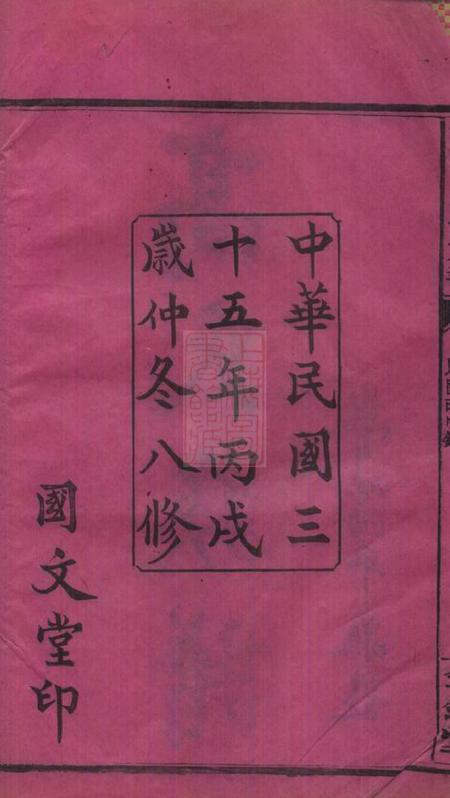 中華民國三
十五年丙戌
歲仲冬八修
國文堂印